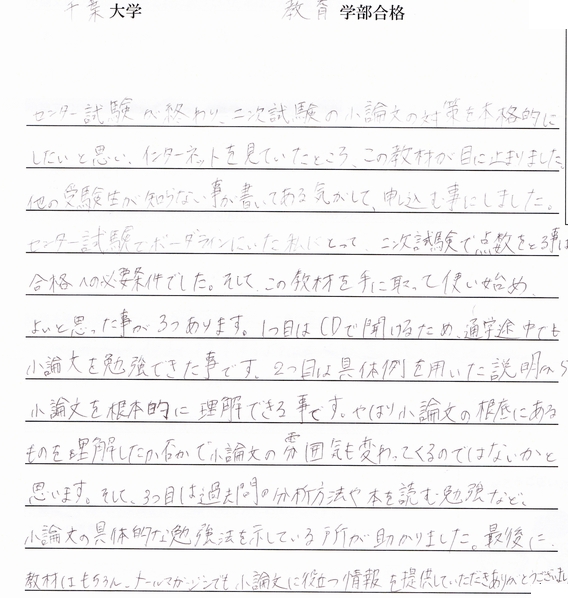 千葉 大学 教育 学部合格
センター試験が終わり、二次試験の小論文の対策を本格的に
したいと思い、インターネットを見ていたところ、この教材が目に止まりました。
他の受験生が知らない事が書いてある気がして、申し込む事にしました。
センター試験でボーダーラインにいた私にとって、二次試験で点数をとる事は
合格への必要条件でした。そして、この教材を手に取って使い始め、
よいと思った事が3つあります。1つ目はCDで聞けるため、通学途中でも
小論文を勉強できた事です。2つ目は具体例を用いた説明から
小論文を根本的に理解できる事です。やはり小論文の根底にある
ものを理解したか否かで小論文の雰囲気も変わってくるのではないかと
思います。そして、3つ目は過去問の分析方法や本を読む勉強など、
小論文の具体的な勉強法を示している所が助かりました。最後に、
教材はもちろん、メールマガジンでも小論文に役立つ情報を提供していただきありがとうございまし